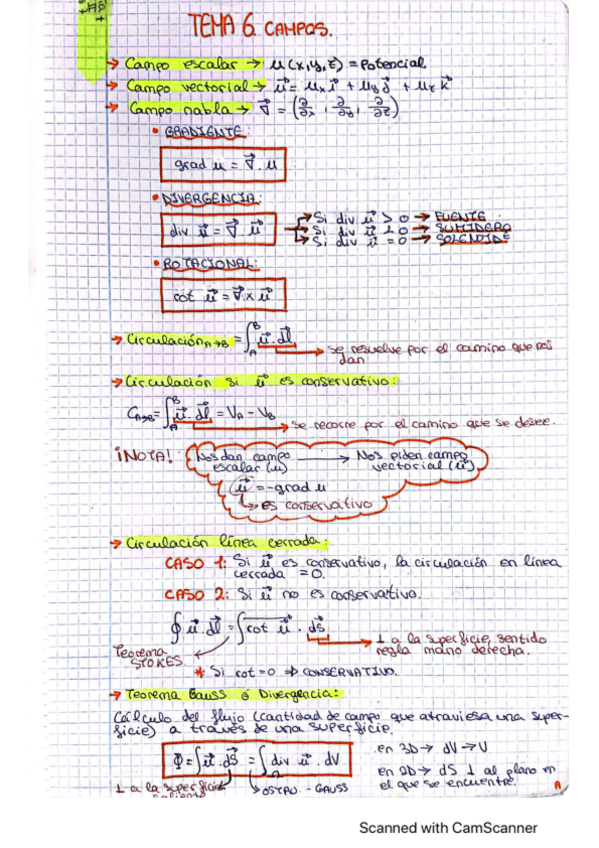 TEMA 6. CAMPOS.
→ Campo escalar → u(x,y,z) = Potencial
→ Campo vectorial → u⃗ = uₓ i⃗ + u_y j⃗ + u_z k⃗
→ Campo nabla → ∇⃗ = (∂/∂x, ∂/∂y, ∂/∂z)
• GRADIENTE:
grad u = ∇⃗ . u
• DIVERGENCIA:
div u⃗ = ∇⃗ . u⃗
Si div u⃗ > 0 → FUENTE
Si div u⃗ < 0 → SUMIDERO
Si div u⃗ = 0 → SOLENOIDE
• ROTACIONAL:
rot u⃗ = ∇⃗ x u⃗
→ Circulación A→B = ∫_A^B u⃗ . dl⃗
→ se resuelve por el camino que nos
dan
→ Circulación si u⃗ es conservativo:
C_A→B = ∫_A^B u⃗ . dl⃗ = V_A - V_B
→ se recorre por el camino que se desee.
¡NOTA!
Nos dan campo escalar (u) → Nos piden campo vectorial (u⃗)
u⃗ = -grad u
↳ es conservativo
→ Circulación línea cerrada:
CASO 1: Si u⃗ es conservativo, la circulación en línea
cerrada = 0.
CASO 2: Si u⃗ no es conservativo.
∮ u⃗ . dl⃗ = ∫ rot u⃗ . ds⃗
→ ⊥ a la superficie, sentido
regla mano derecha.
Teorema
STOKES.
* Si rot = 0 ⇒ CONSERVATIVO.
→ Teorema Gauss o Divergencia:
Cálculo del flujo (cantidad de campo que atraviesa una super-
ficie) a través de una superficie.
Φ = ∫ u⃗ . ds⃗ = ∫ div u⃗ . dV
en 3D → dV → V
en 2D → dS ⊥ al plano en
el que se encuentre.
⊥ a la superficie
→ OSTRO. - GAUSS
A
Scanned with CamScanner